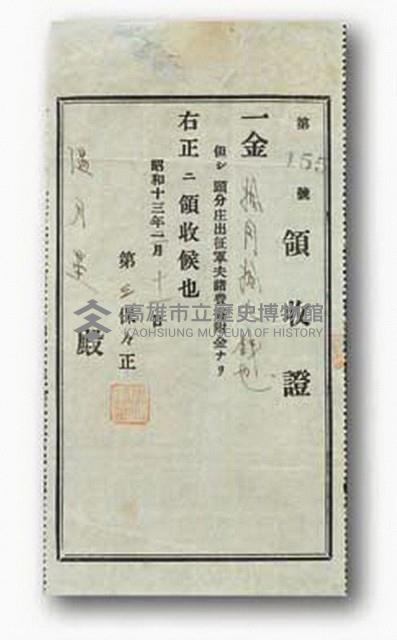 領收證
第155號
一金拾円拾錢也
但シ頭分庄出征軍夫諸費寄附金ナリ
右正ニ領收候也
昭和十三年二月十日
第三保々正
殿
高雄市立歷史博物館
KAOHSIUNG MUSEUM OF HISTORY